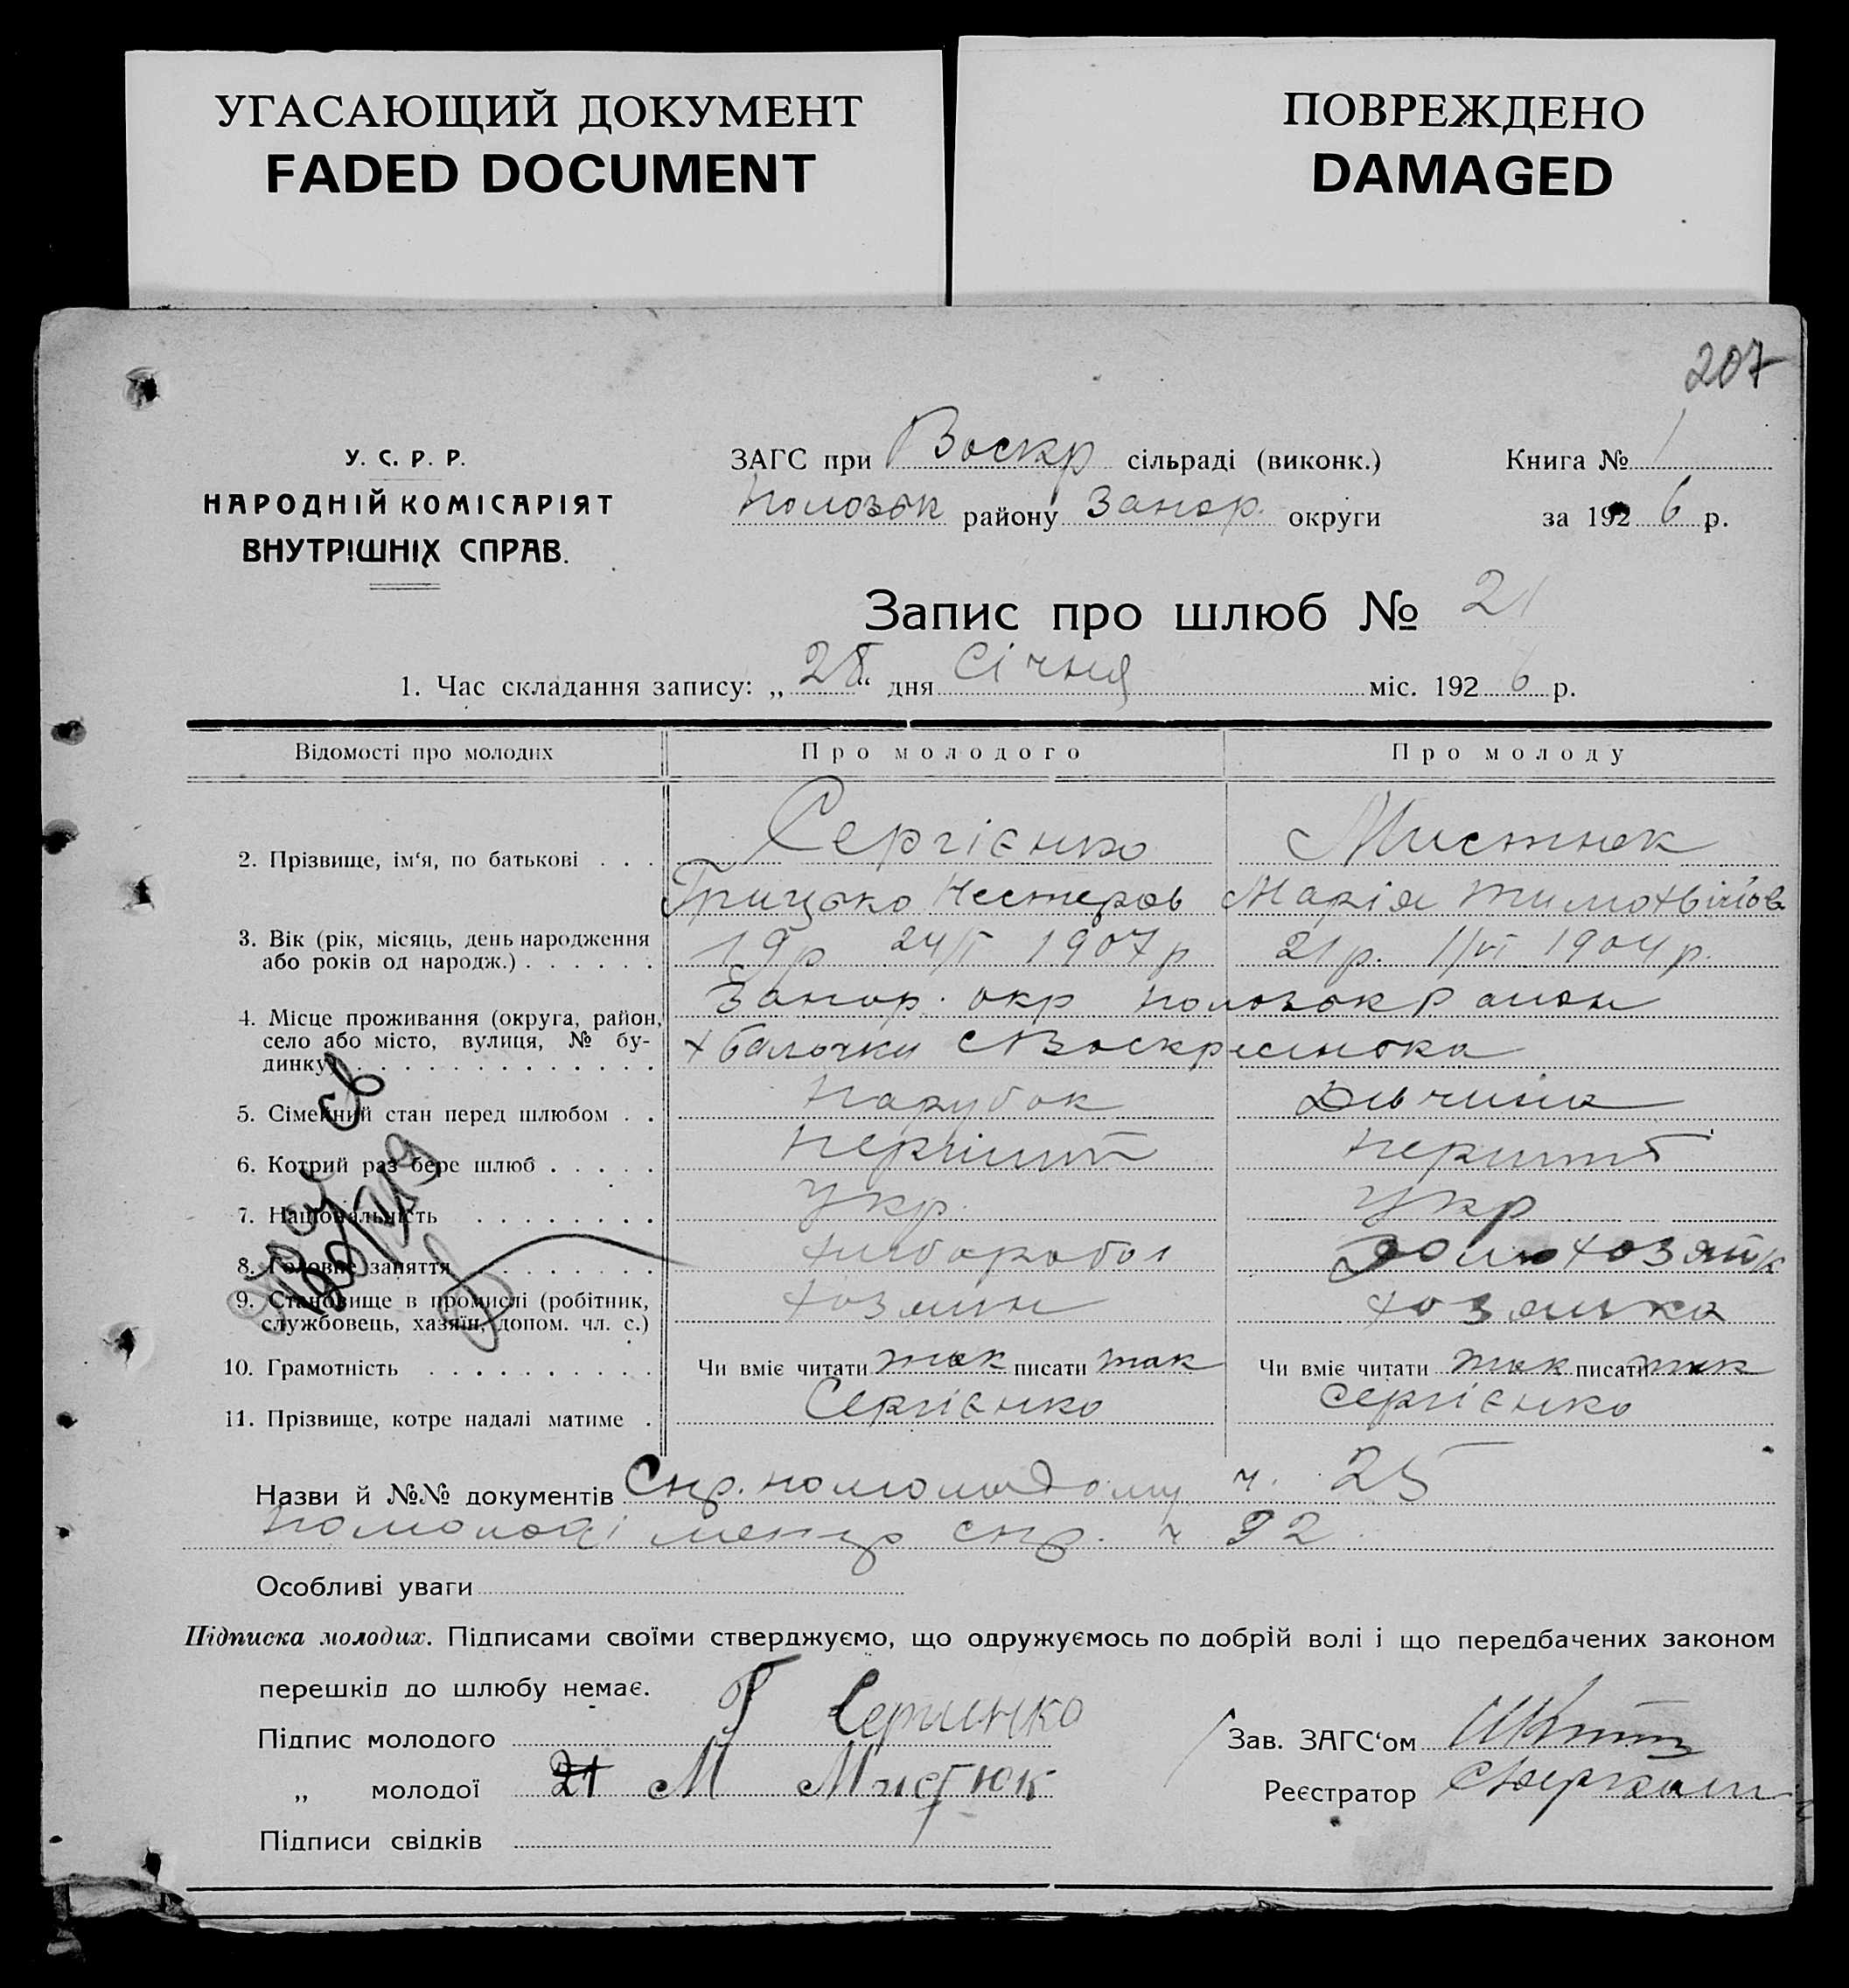 УГАСАЮЩИЙ ДОКУМЕНТ
FADED DOCUMENT
ПОВРЕЖДЕНО
DAMAGED
207
У. С. Р. Р.
НАРОДНІЙ КОМІСАРІЯТ
ВНУТРІШНІХ СПРАВ.
ЗАГС при Воскр сільраді (виконк.)
Пологзьк району Запор. округи
Книга № 1
за 192 6 р.
Запис про шлюб № 21
1. Час складання запису: „ 28 “ дня Січня міс. 192 6 р.
Відомості про молодих Про молодого Про молоду
2. Прізвище, ім‘я, по батькові . . . Сергієнко Мистюк
Грицько Нестеров Марія Тимохвійов
3. Вік (рік, місяць, день народження 19р 24/I 1907 р 21 р. 1/VI 1904 р.
або років од народж.) . . . . . .
4. Місце проживання (округа, район, Запор. окр район
село або місто, вулиця, № бу- х балочки с Воскресенка
динку) . . . . . . . . . . . . .
5. Сімейний стан перед шлюбом . . Парубок Дівчина
6. Котрий раз бере шлюб . . . . . перший перший
7. Національність . . . . . . . . Укр. Укр
8. Головне заняття . . . . . . . . хлібороб домохозяйк
9. Становище в промислі (робітник, хозяин хозяйка
службовець, хазяїн, допом. чл. с.)
10. Грамотність . . . . . . . . . . Чи вміє читати так писати так Чи вміє читати так писати так
11. Прізвище, котре надалі матиме . Сергієнко Сергієнко
Назви й №№ документів Спр. по молодому ч. 25
по молоді спр. ч 92
Особливі уваги
Підписка молодих. Підписами своїми стверджуємо, що одружуємось по добрій волі і що передбачених законом
перешкід до шлюбу немає.
Підпис молодого Г Сергиенко
„ молодої 21 М Мистюк
Підписи свідків
Зав. ЗАГС‘ом
Реєстратор